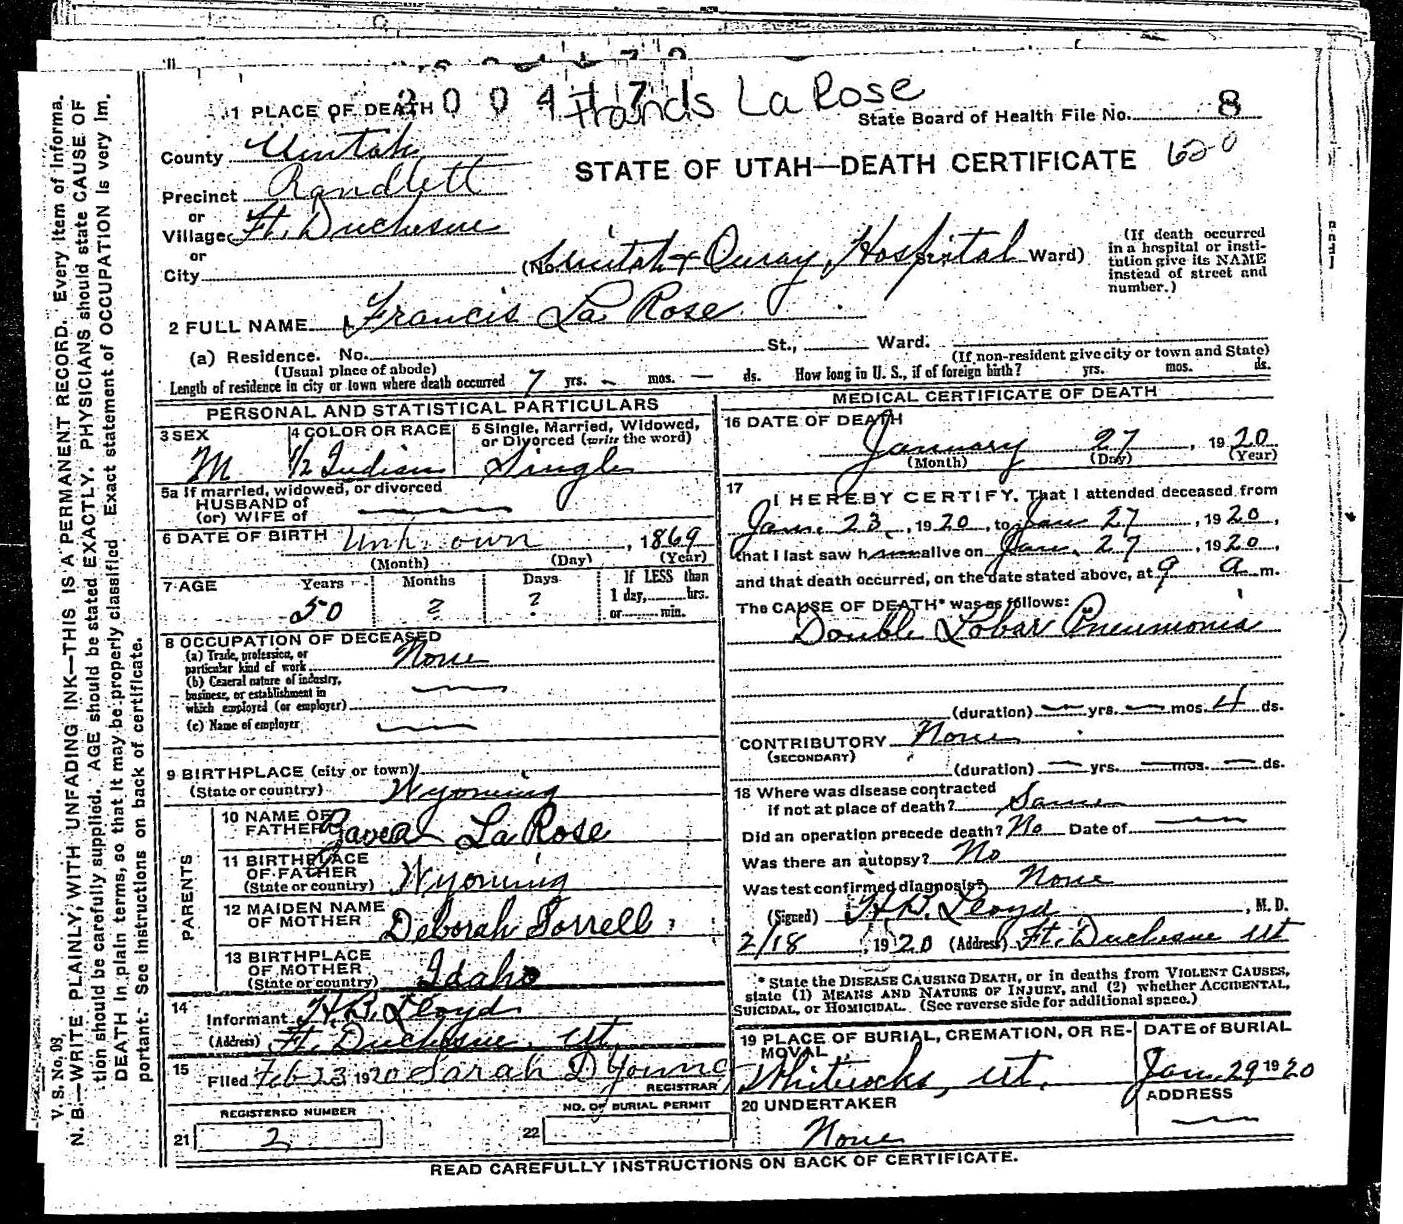 2004172
Francis La Rose
1 PLACE OF DEATH
State Board of Health File No. 8
County Uintah
STATE OF UTAH—DEATH CERTIFICATE 620
Precinct Randlett
or
Village Ft. Duchesne
or
City (No. Uintah & Ouray, Hospital Ward)
(If death occurred in a hospital or insti-
tution give its NAME
instead of street and
number.)
2 FULL NAME Francis La Rose
(a) Residence. No. St., Ward.
(Usual place of abode) (If non-resident give city or town and State)
Length of residence in city or town where death occurred 7 yrs. – mos. — ds. How long in U. S., if of foreign birth? yrs. mos. ds.
PERSONAL AND STATISTICAL PARTICULARS
3 SEX 4 COLOR OR RACE 5 Single, Married, Widowed,
or Divorced (write the word)
M ½ Indian Single
5a If married, widowed, or divorced
HUSBAND of
(or) WIFE of —
6 DATE OF BIRTH Unknown, 1869
(Month) (Day) (Year)
7 AGE Years Months Days If LESS than
1 day, hrs.
or min.
50 ? ?
8 OCCUPATION OF DECEASED
(a) Trade, profession, or
particular kind of work None
(b) General nature of industry,
business, or establishment in
which employed (or employer) —
(c) Name of employer —
9 BIRTHPLACE (city or town)
(State or country) Wyoming
PARENTS
10 NAME OF
FATHER La Rose
11 BIRTHPLACE
OF FATHER
(State or country) Wyoming
12 MAIDEN NAME
OF MOTHER Deborah
13 BIRTHPLACE
OF MOTHER
(State or country) Idaho
14
Informant H.B. Lloyd
(Address) Ft. Duchesne, Ut.
15
Filed Feb 23 1920 Sarah D Young
REGISTRAR
REGISTERED NUMBER NO. OF BURIAL PERMIT
21 2 22
MEDICAL CERTIFICATE OF DEATH
16 DATE OF DEATH
January 27, 1920
(Month) (Day) (Year)
17
I HEREBY CERTIFY, That I attended deceased from
Jan. 23, 1920, to Jan 27, 1920,
that I last saw him alive on Jan. 27, 1920,
and that death occurred, on the date stated above, at 9 a m.
The CAUSE OF DEATH* was as follows:
Double Lobar Pneumonia
(duration) — yrs. — mos. 4 ds.
CONTRIBUTORY None
(SECONDARY)
(duration) — yrs. — mos. — ds.
18 Where was disease contracted
if not at place of death? Same
Did an operation precede death? No Date of —
Was there an autopsy? No
Was test confirmed diagnosis? None
(Signed) H.B. Lloyd, M. D.
2/18, 1920 (Address) Ft. Duchesne Ut
* State the DISEASE CAUSING DEATH, or in deaths from VIOLENT CAUSES,
state (1) MEANS AND NATURE OF INJURY, and (2) whether ACCIDENTAL,
SUICIDAL, or HOMICIDAL. (See reverse side for additional space.)
19 PLACE OF BURIAL, CREMATION, OR RE-
MOVAL
Whiterocks, Ut.
DATE of BURIAL
Jan. 29 1920
20 UNDERTAKER
None
ADDRESS
—
READ CAREFULLY INSTRUCTIONS ON BACK OF CERTIFICATE.
V. S. No. 98
N. B.—WRITE PLAINLY, WITH UNFADING INK—THIS IS A PERMANENT RECORD. Every item of informa-
tion should be carefully supplied. AGE should be stated EXACTLY. PHYSICIANS should state CAUSE OF
DEATH in plain terms, so that it may be properly classified. Exact statement of OCCUPATION is very im-
portant. See instructions on back of certificate.